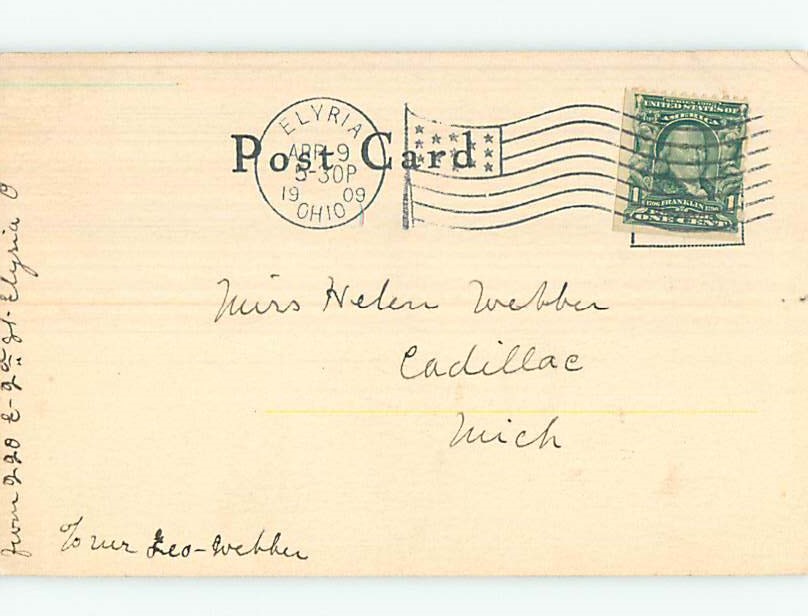 Post Card
ELYRIA
APR 9
5-30P
1909
OHIO
SERIES 1902
UNITED STATES OF
AMERICA
1 1706 FRANKLIN 1790 1
ONE CENT
Miss Helen Webber
Cadillac
Mich
℅ mr Geo-Webber
from 220 E-2nd St. Elyria O